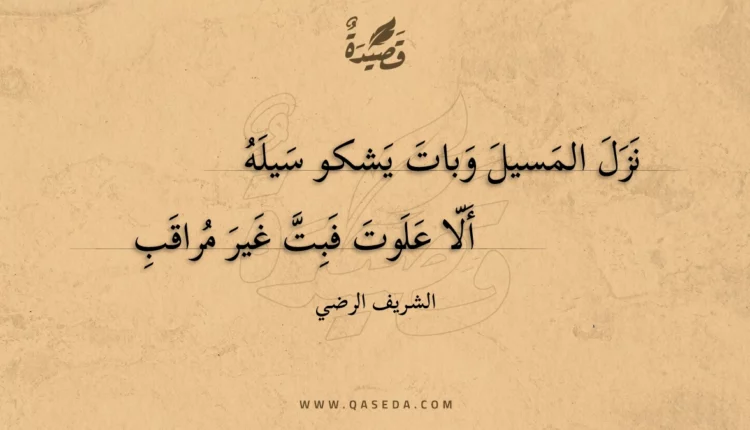 قَصِيْدَةٌ
نَزَلَ المَسيلَ وَباتَ يَشكو سَيلَهُ
أَلّا عَلَوتَ فَبِتَّ غَيرَ مُراقَبِ
الشريف الرضي
WWW.QASEDA.COM